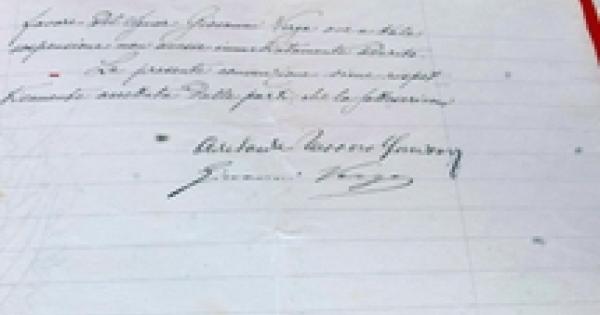 favore del Signor Giovanni Verga ove a tale
sospensione non avesse immediatamente
La presente convenzione viene rispet
tivamente accettata dalle parti che la sottoscrivono
Giovanni Verga